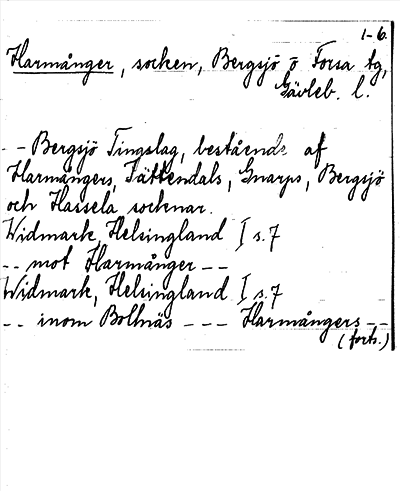 1-6.
Harmånger, socken, Bergsjö o Forsa tg,
Gävleb. l.
- - Bergsjö Tingslag, bestående af
Harmångers, Jättendals, Gnarps, Bergsjö
och Hassela socknar.
Widmark, Helsingland I s. 7
- - mot Harmånger - -
Widmark, Helsingland I s. 7
- - inom Bollnäs - - - Harmångers - -
(forts.)